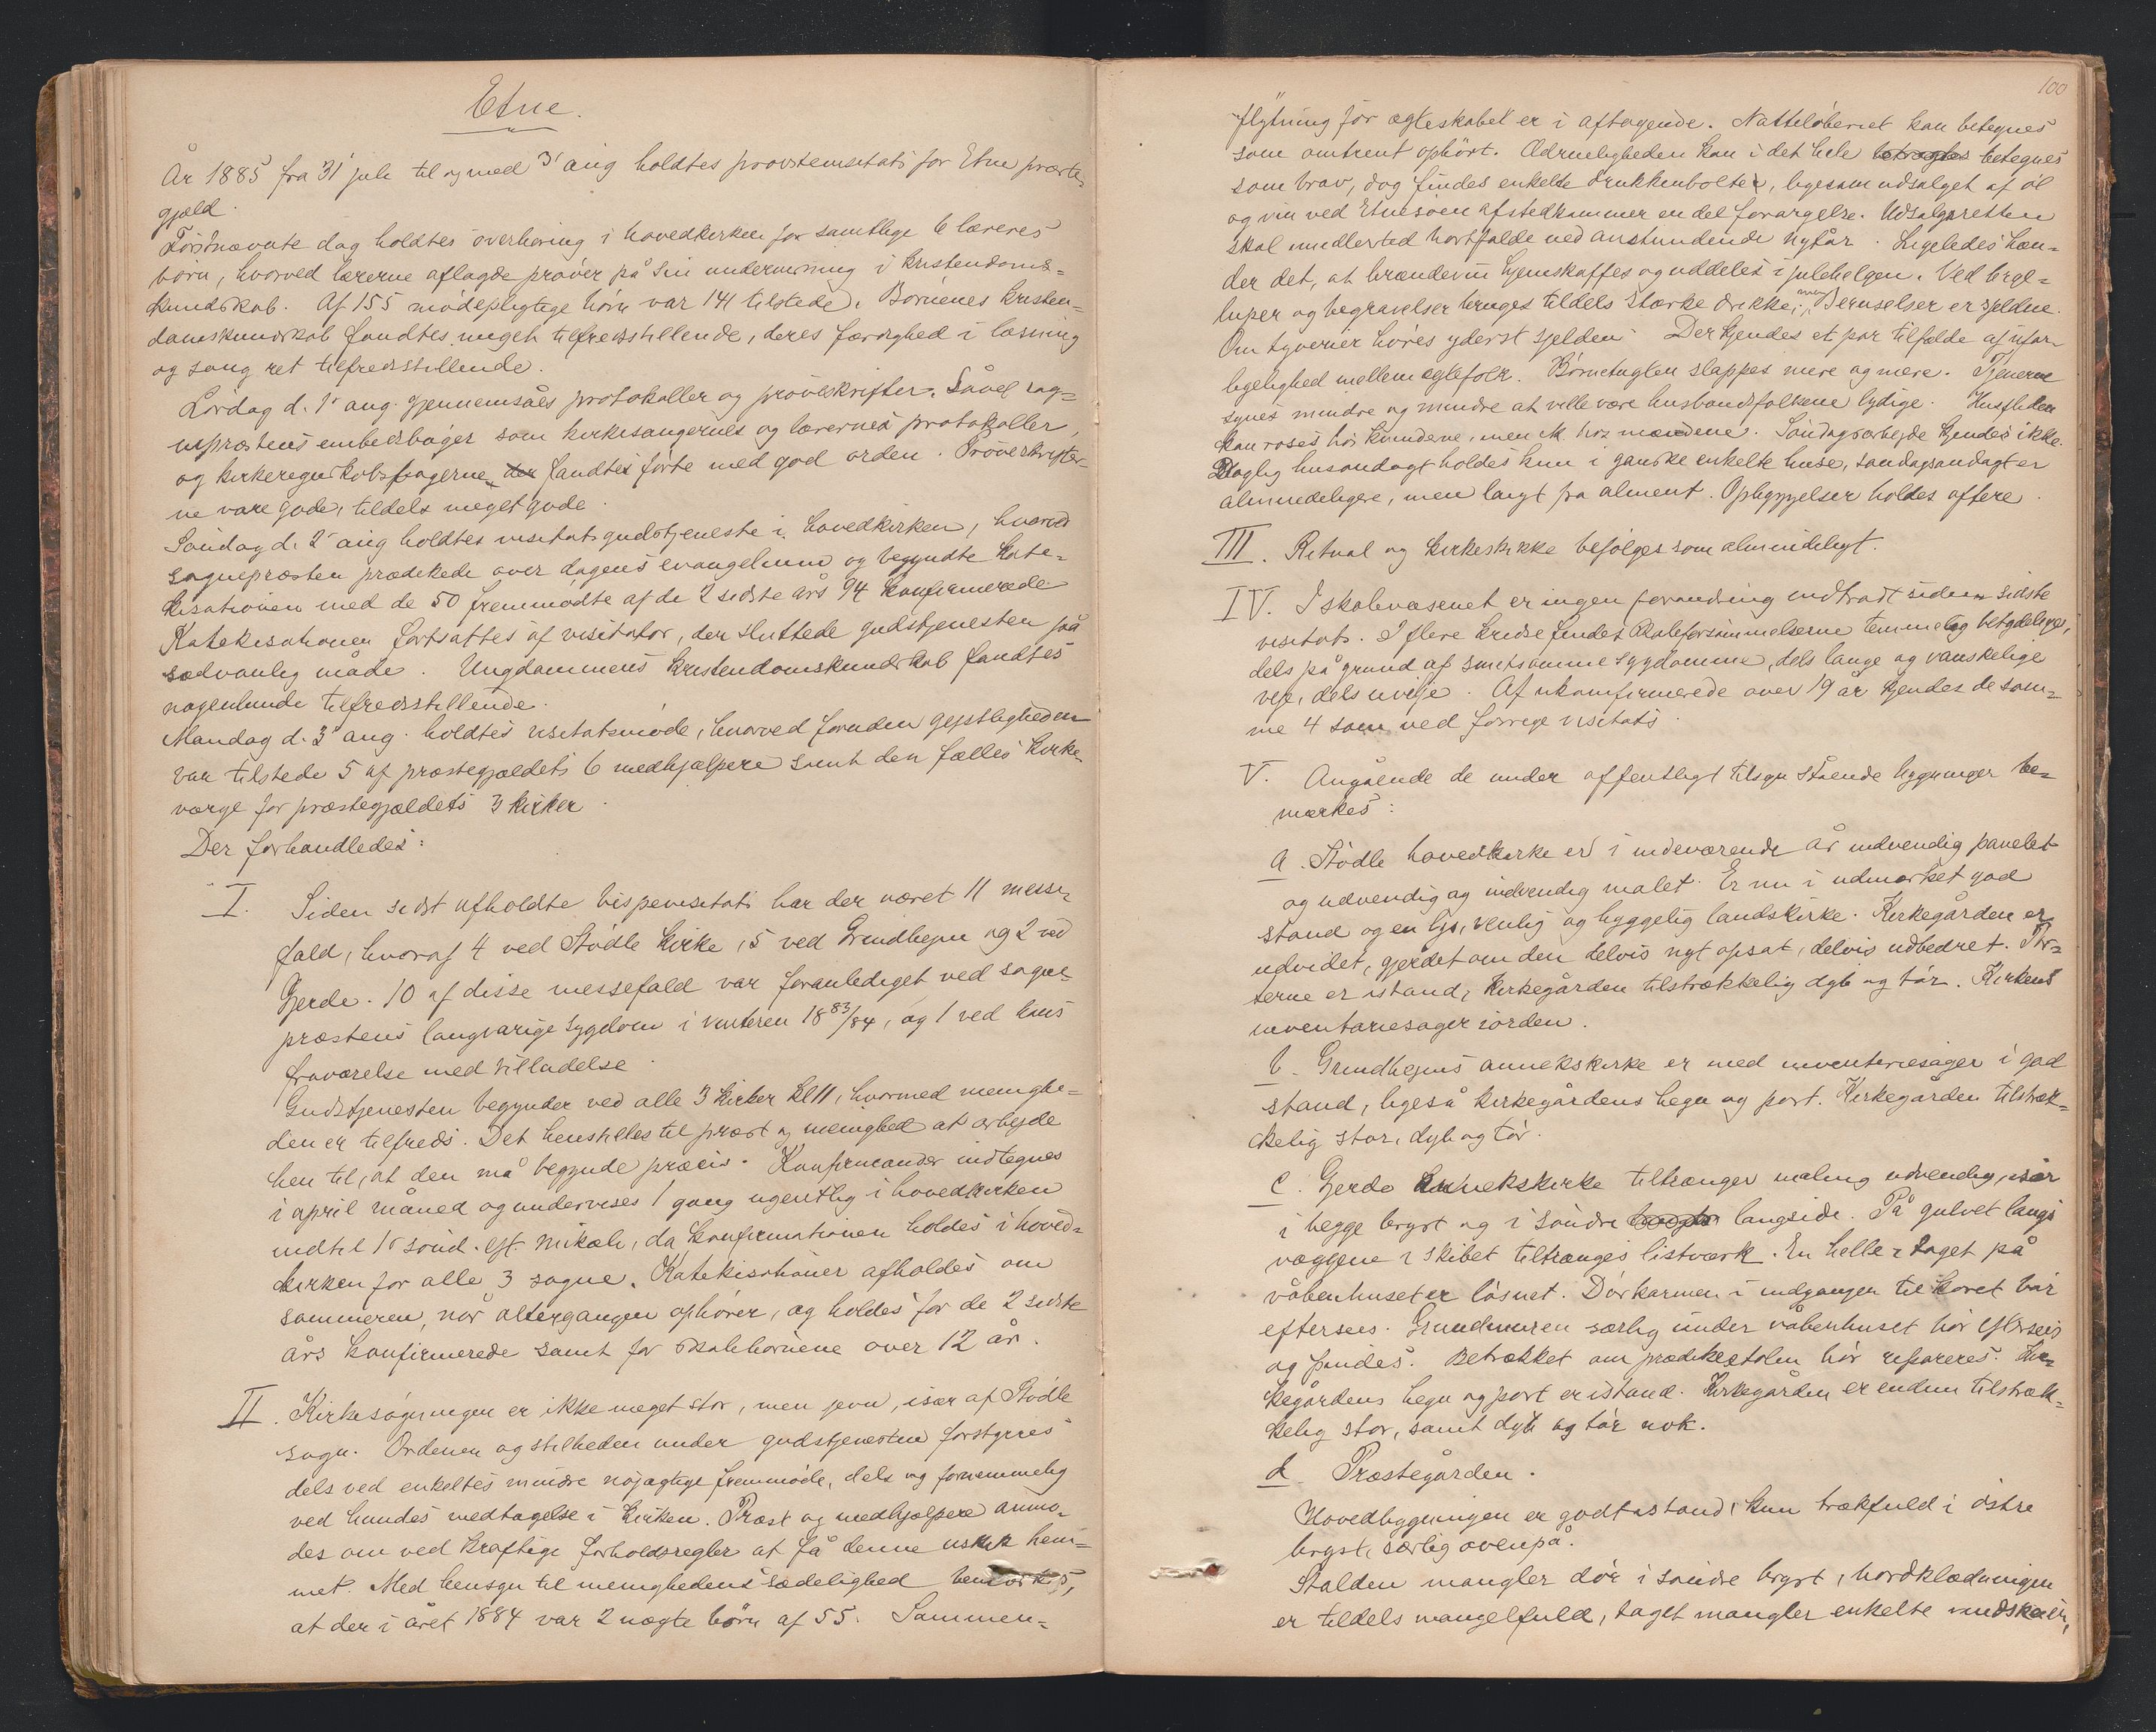 Etne.
År 1885 fra 31' juli til og med 3' aug holdtes provstevisitats for Etne præste-
gjæld.
Førstnævnte dag holdtes overhøring i hovedkirken for samtlige 6 læreres
børn, hvorved lærerne aflagde prøver på sin undervisning i kristendoms-
kundskab. Af 155 mødepligtige børn var 141 tilstede. Børnenes kristen-
domskundskab fandtes meget tilfredsstillende, deres færdighed i læsning
og sang ret tilfredsstillende.
Lørdag d. 1' aug. gjennemsåes protokoller og prøveskrifter. Såvel sog-
neprestens embedsbøger som kirkesangernes og lærernes protokoller,
og kirkeregnskabsbøgerne der fandtes førte med god orden. Prøveskrifter-
ne vare gode, tildels meget gode.
Søndag d. 2' aug holdtes visitatsgudstjeneste i hovedkirken, hvorved
sognepræsten prædikede over dagens evangelium og begyndte kate-
kisationen med de 50 fremmødte af de 2 sidste års 94 konfirmerede
Katekisationen fortsattes af visitator, der sluttede gudstjenesten på
sædvanlig måde. Ungdommens kristendomskundskab fandtes
nogenlunde tilfredsstillende.
Mandag d. 3' aug. holdtes visitatsmøde, hvorved foruden gejstligheden
var tilstede 5 af præstegjældets 6 medhjælpere samt den fælles kirke-
værge for præstegjældets 3 kirker.
Der forhandledes:
I. Siden sidst afholdte bispevisitats har der været 11 messe-
fald, hvoraf 4 ved Stødle kirke, 5 ved Grindhejm og 2 ved
Gjerde. 10 af disse messefald var foranlediget ved sogne-
præstens langvarige sygdom i vinteren 18 83/84, og 1 ved hans
fraværelse med tilladelse.
Gudstjenesten begynder ved alle 3 kirker kl 11, hvormed menighe-
den er tilfreds. Det henstilles til præst og menighed at arbejde
hen til, at den må begynde præcis. Konfirmander indtegnes
i april måned og undervises 1 gang ugentlig i hovedkirken
indtil 1' sønd. eft. Mikaeli, da konfirmationen holdes i hoved-
kirken for alle 3 sogne. Katekisationer afholdes om
sommeren, når altergangen ophører, og holdes for de 2 sidste
års konfirmerede samt for skolebørnene over 12 år.
II. Kirkesøgningen er ikke meget stor, men jevn, især af Stødle
sogn. Ordenen og stilheden under gudstjenesten forstyrres
dels ved enkeltes mindre nøjagtige fremmøde, dels og fornemmelig
ved hundes medtagelse i kirken. Præst og medhjælpere anmo-
des om ved kraftige forholdsregler at få denne uskik hem-
met. Med hensyn til menighedens sædelighed bemærkes,
at der i året 1884 var 2 uægte børn af 55. Sammen-
100
"flytning før ægteskabet" er i aftagende. Natteløberiet kan betegnes
som omtrent ophørt. Ædrueligheden kan i det hele betragtes betegnes
som brav, dog findes enkelte drukkenbolte, ligesom udsalget af øl
og vin ved Etnesøen afstedkommer en del forargelse. Udsalgsretten
skal imidlertid bortfalde ved anstundende nytår. Ligeledes hæn-
der det, at brændevin hjemskaffes og uddeles i julehelgen. Ved bryl-
luper og begravelser bruges tildels stærke drikke; men beruselser er sjeldne.
Om tyverier høres yderst sjelden. Der kjendes et par tilfælde af ufor-
ligelighed mellem ægtefolk. Børnetugten slappes mere og mere. Tjenerne
synes mindre og mindre at ville være husbondsfolkene lydige. Husfliden
kan roses hos kvinderne, men ikke hos mændene. Søndagsarbejde kjendes ikke.
Daglig husandagt holdes kun i ganske enkelte huse, søndagsandagt er
almindeligere, men langt fra alment. Opbyggelser holdes oftere.
III. Ritual og kirkeskikke befølges som almindeligt.
IV. I skolevæsenet er ingen forandring indtrådt siden sidste
visitats. I flere kredse findes skoleforsømmelserne temmelig betydelige,
dels på grund af smitsomme sygdomme, dels lange og vanskelige
veje, dels uvilje. Af ukonfirmerede over 19 år kjendes de sam-
me 4 som ved forrige visitats.
V. Angående de under offentligt tilsyn stående bygninger be-
mærkes:
a. Stødle hovedkirke er i indeværende år indvendig panelet
og udvendig og indvendig malet. Er nu i udmærket god
stand og en lys, venlig og hyggelig landskirke. Kirkegården er
udvidet, gjerdet om den delvis nyt opsat, delvis udbedret. Por-
terne er istand, kirkegården tilstrækkelig dyb og tør. Kirkens
inventariesager i orden.
b. Grindhejms annekskirke er med inventariesager i god
stand, ligeså kirkegårdens hegn og port. Kirkegården tilstræk-
kelig stor, dyb og tør.
c. Gjerde annekskirke tiltrænger maling udvendig, især
i begge bryst og i søndre langside. På gulvet langs
væggene i skibet tiltrænges listværk. En helle i taget på
våbenhuset er løsnet. Dørkarmen i indgangen til koret bør
eftersees. Grundmuren særlig under våbenhuset bør eftersees
og pindes. Betrækket om prædikestolen bør repareres. Kir-
kegårdens hegn og port er istand. Kirkegården er endnu tilstræk-
kelig stor, samt dyb og tør nok.
d. Præstegården.
Hovedbygningen er godt istand, kun trækfuld i østre
bryst, særlig ovenpå.
Stalden mangler dør i søndre bryst, bordklædningen
er tildels mangelfuld, taget mangler enkelte vindskeier,